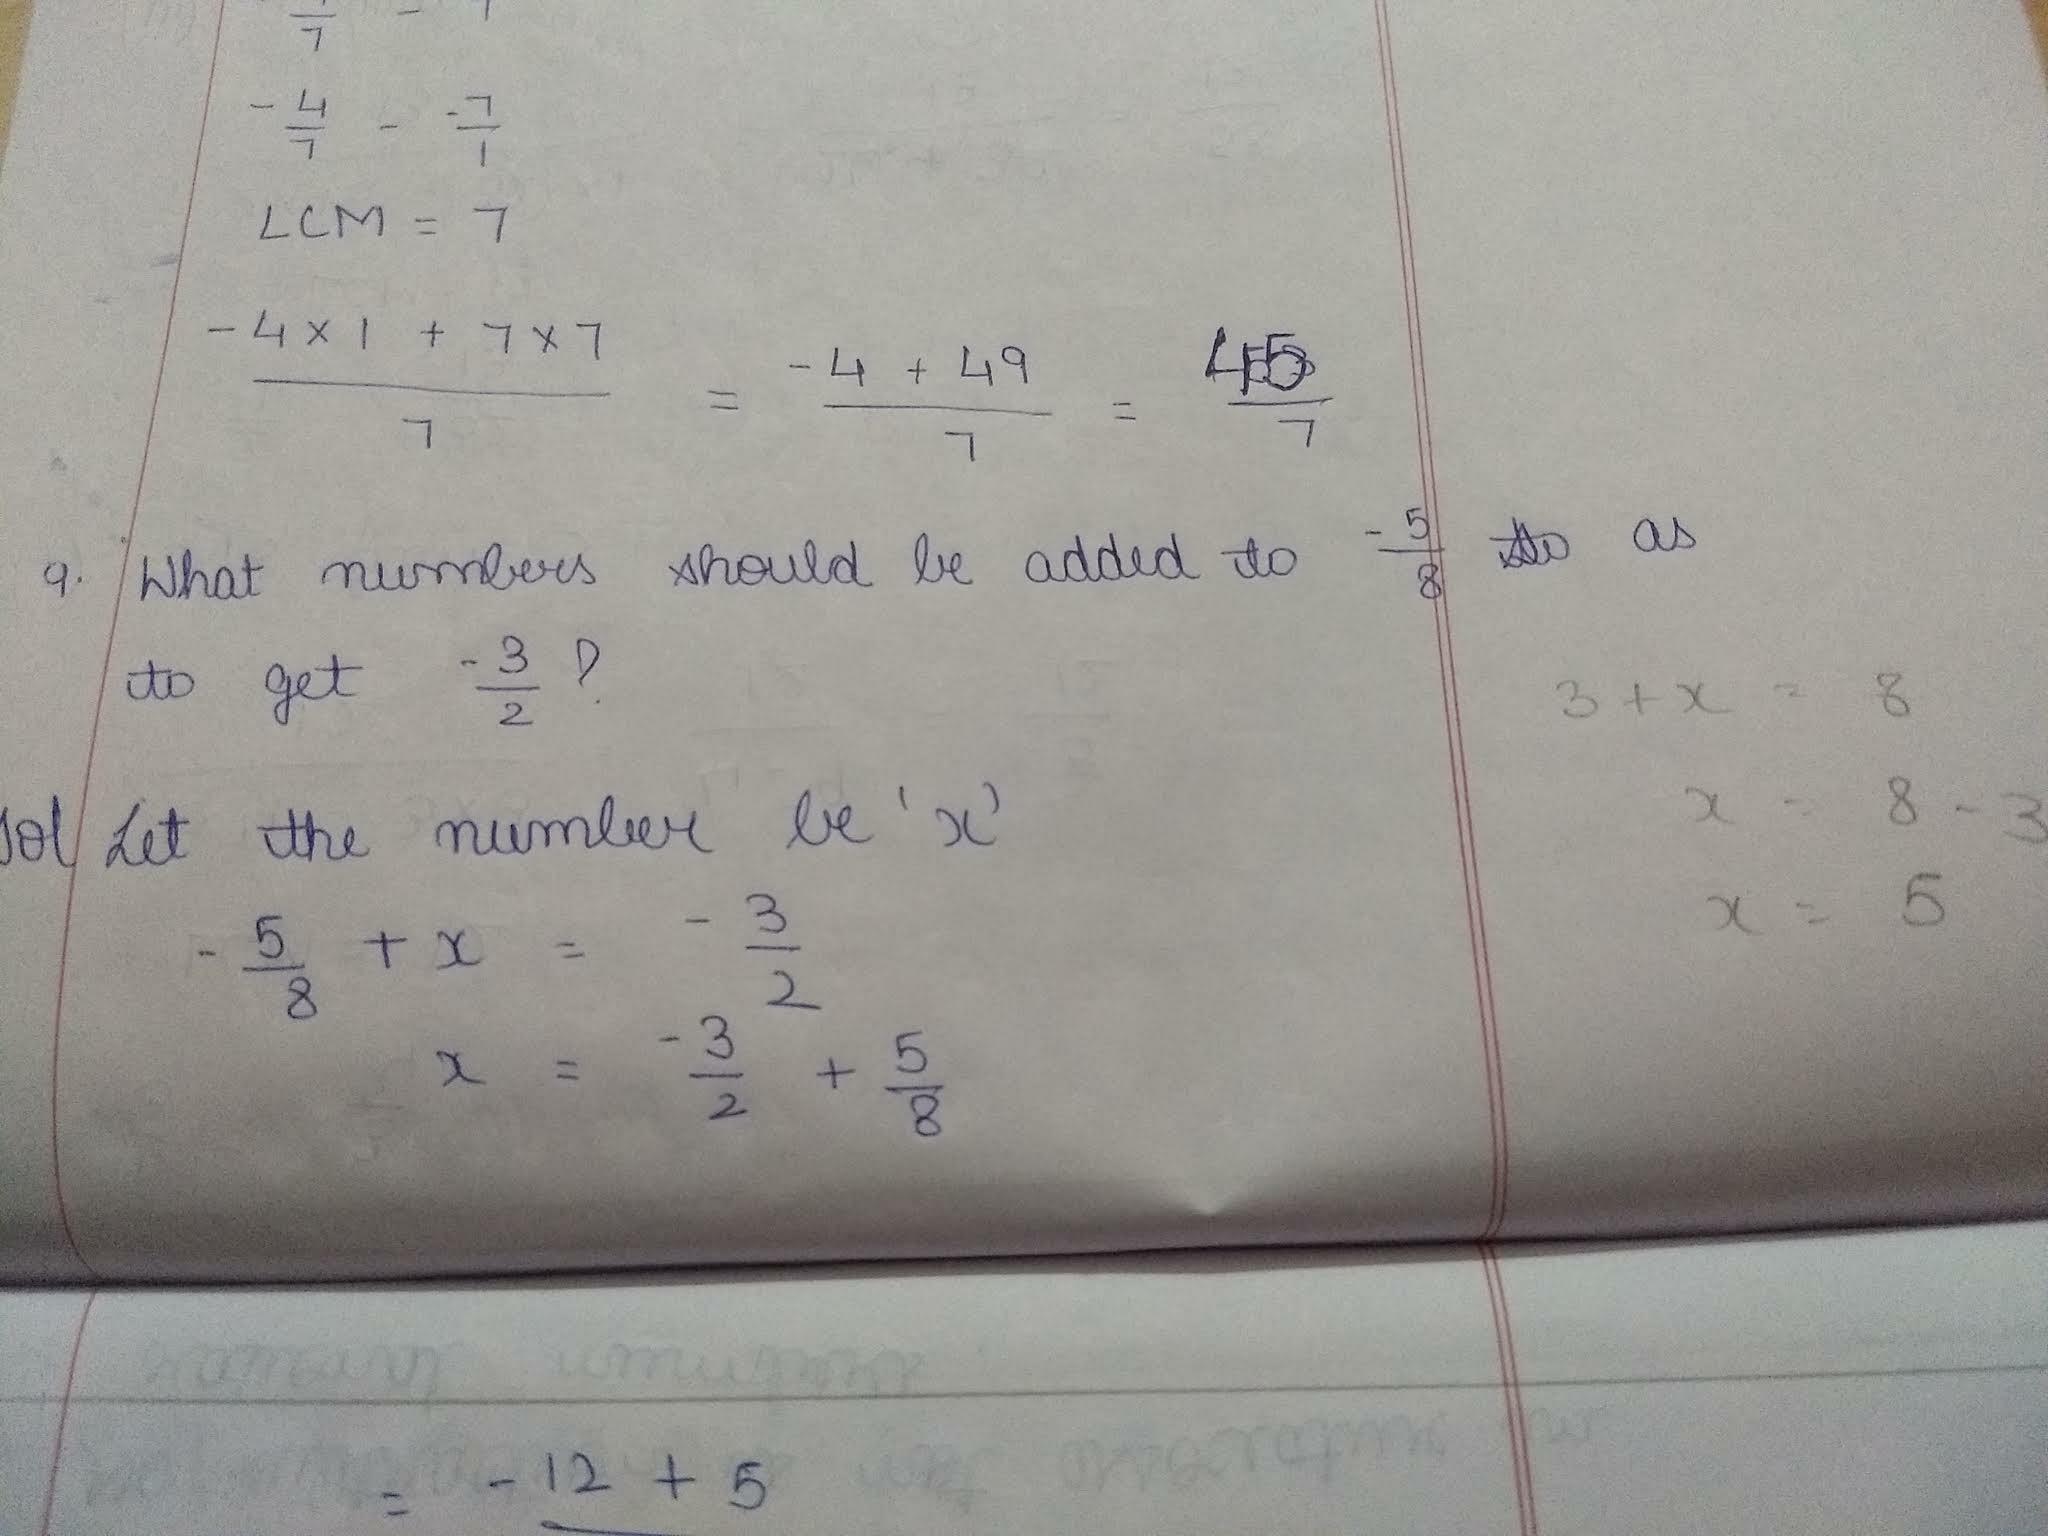 7
-4/7 - -7/1
LCM = 7
-4 × 1 + 7 × 7 / 7 = -4 + 49 / 7 = 45/7
9. What numbers should be added to -5/8 so as
to get -3/2 ?
3 + x = 8
x = 8 - 3
x = 5
Sol Let the number be 'x'
-5/8 + x = -3/2
x = -3/2 + 5/8
= -12 + 5